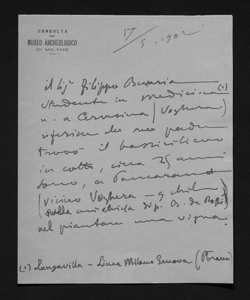 CONSULTA
DEL
MUSEO ARCHEOLOGICO
DI MILANO
17/5 1902
il Sig. Filippo
studente in medicina (1)
n. a Cervesina (Voghera)
riferisce che suo padre
trovò il bassorilievo
in cotto, circa 25 anni
sono, a Pancarana
(vicino Voghera – 9 chil.
nel piantare una vigna.
(1) Lungavilla – Linea Milano Genova (Pavia)